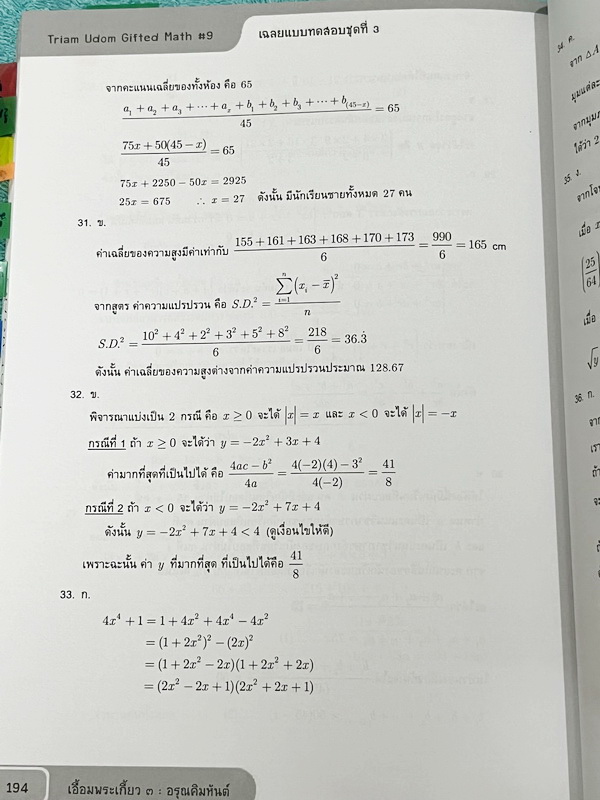 Triam Udom Gifted Math #9
เฉลยแบบทดสอบชุดที่ 3
จากคะแนนเฉลี่ยของทั้งห้อง คือ 65
(a₁ + a₂ + a₃ + ⋯ + aₓ + b₁ + b₂ + b₃ + ⋯ + b₍₄₅₋ₓ₎)/45 = 65
(75x + 50(45 − x))/45 = 65
75x + 2250 − 50x = 2925
25x = 675 ∴ x = 27 ดังนั้น มีนักเรียนชายทั้งหมด 27 คน
31. ข.
ค่าเฉลี่ยของความสูงมีค่าเท่ากับ (155 + 161 + 163 + 168 + 170 + 173)/6 = 990/6 = 165 cm
จากสูตร ค่าความแปรปรวน คือ S.D.² = (∑ᵢ₌₁ⁿ (xᵢ − x̄)²)/n
S.D.² = (10² + 4² + 2² + 3² + 5² + 8²)/6 = 218/6 = 36.3̇
ดังนั้น ค่าเฉลี่ยของความสูงต่างจากค่าความแปรปรวนประมาณ 128.67
32. ข.
พิจารณาแบ่งเป็น 2 กรณี คือ x ≥ 0 จะได้ |x| = x และ x < 0 จะได้ |x| = −x
กรณีที่ 1 ถ้า x ≥ 0 จะได้ว่า y = −2x² + 3x + 4
ค่ามากที่สุดที่เป็นไปได้ คือ (4ac − b²)/4a = (4(−2)(4) − 3²)/4(−2) = 41/8
กรณีที่ 2 ถ้า x < 0 จะได้ว่า y = −2x² + 7x + 4
ดังนั้น y = −2x² + 7x + 4 < 4 (ดูเงื่อนไขให้ดี)
เพราะฉะนั้น ค่า y ที่มากที่สุด ที่เป็นไปได้คือ 41/8
33. ก.
4x⁴ + 1 = 1 + 4x² + 4x⁴ − 4x²
= (1 + 2x²)² − (2x)²
= (1 + 2x² − 2x)(1 + 2x² + 2x)
= (2x² − 2x + 1)(2x² + 2x + 1)
194
เอื้อมพระเกี้ยว ๓ : อรุณคิมหันต์
34. ค.
จาก △A
มุมแต่ละ
จากมุมภ
ได้ว่า 2
35. ง.
จากโจท
เมื่อ x
(25/64)
เมื่อ
√y
36. ก.
จาก
เรา
ถ้า
จะ